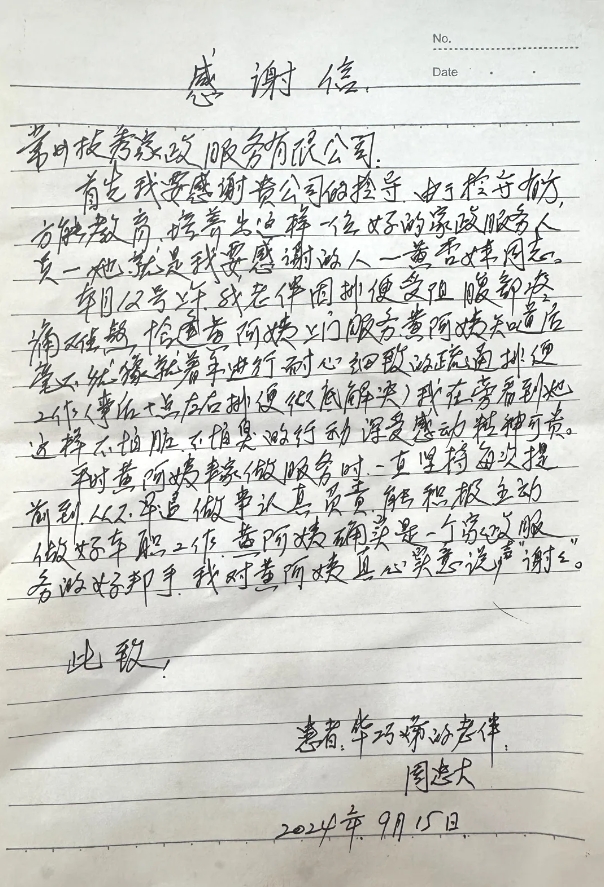 No.
Date
感谢信.
常州技秀家政服务有限公司:
首先我要感谢贵公司的领导.由于领导有方,
方能教育,培养出这样一位好的家政服务人
员—她就是我要感谢的人—黄杏妹同志。
本月12号上午我老伴因排便受阻腹部疼
痛难熬,恰逢黄阿姨上门服务黄阿姨知道后
毫不犹豫就着手进行耐心细致的疏通排便
工作(事后十点左右排便彻底解决)我在旁看到她
这样不怕脏.不怕臭的行动深受感动精神可贵。
平时黄阿姨来家做服务时.一直坚持每次提
前到.从不迟到做事认真负责.能积极主动
做好本职工作.黄阿姨确实是一个家政服
务的好帮手.我对黄阿姨真心实意说声"谢谢"。
此致!
患者:华巧娣的老伴.
周忠大
2024年.9月15日.